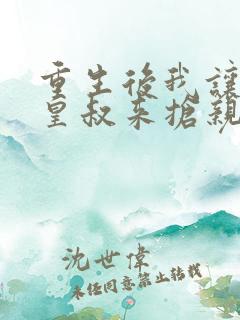 重生後我讓
皇叔來搶親
沈世偉
未經同意禁止轉載